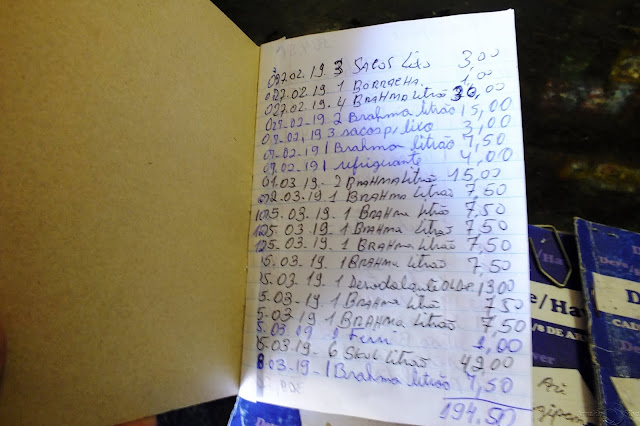 027.02.19.3 SACOS Lixo 3,00
027.02.19 1 BORRACHA. 1,00
027.02.19.4 BRAHMA Litrão 30,00
028-02-19 2 Brahma litrão 15,00
08-02, 19 3 sacos p/ lixo 3,00
09-02-19 1 Brahma litrão 7,50
09.02-19 1 refriguante 4,00
01.03.19-2 BRAHMA Litrão 15,00
02.03.19-1 BRAHMA Litrão 7,50
05.03.19-1 BRAHMA Litrão 7,50
05.03.19-1 BRAHMA Litrão 7,50
05.03.19-1 BRAHMA Litrão 7,50
5.03.19.1 BRAHMA Litrão 7,50
5.03.19 1 13,00
5.03.19 1 BRAHMA 7,50
5.03.19 1 BRAHMA Litrão 7,50
5.03.19 1,00
5.03.19-6 Skol litrão 42,00
8.03-19-1 Brahma litrão 7,50
194,50